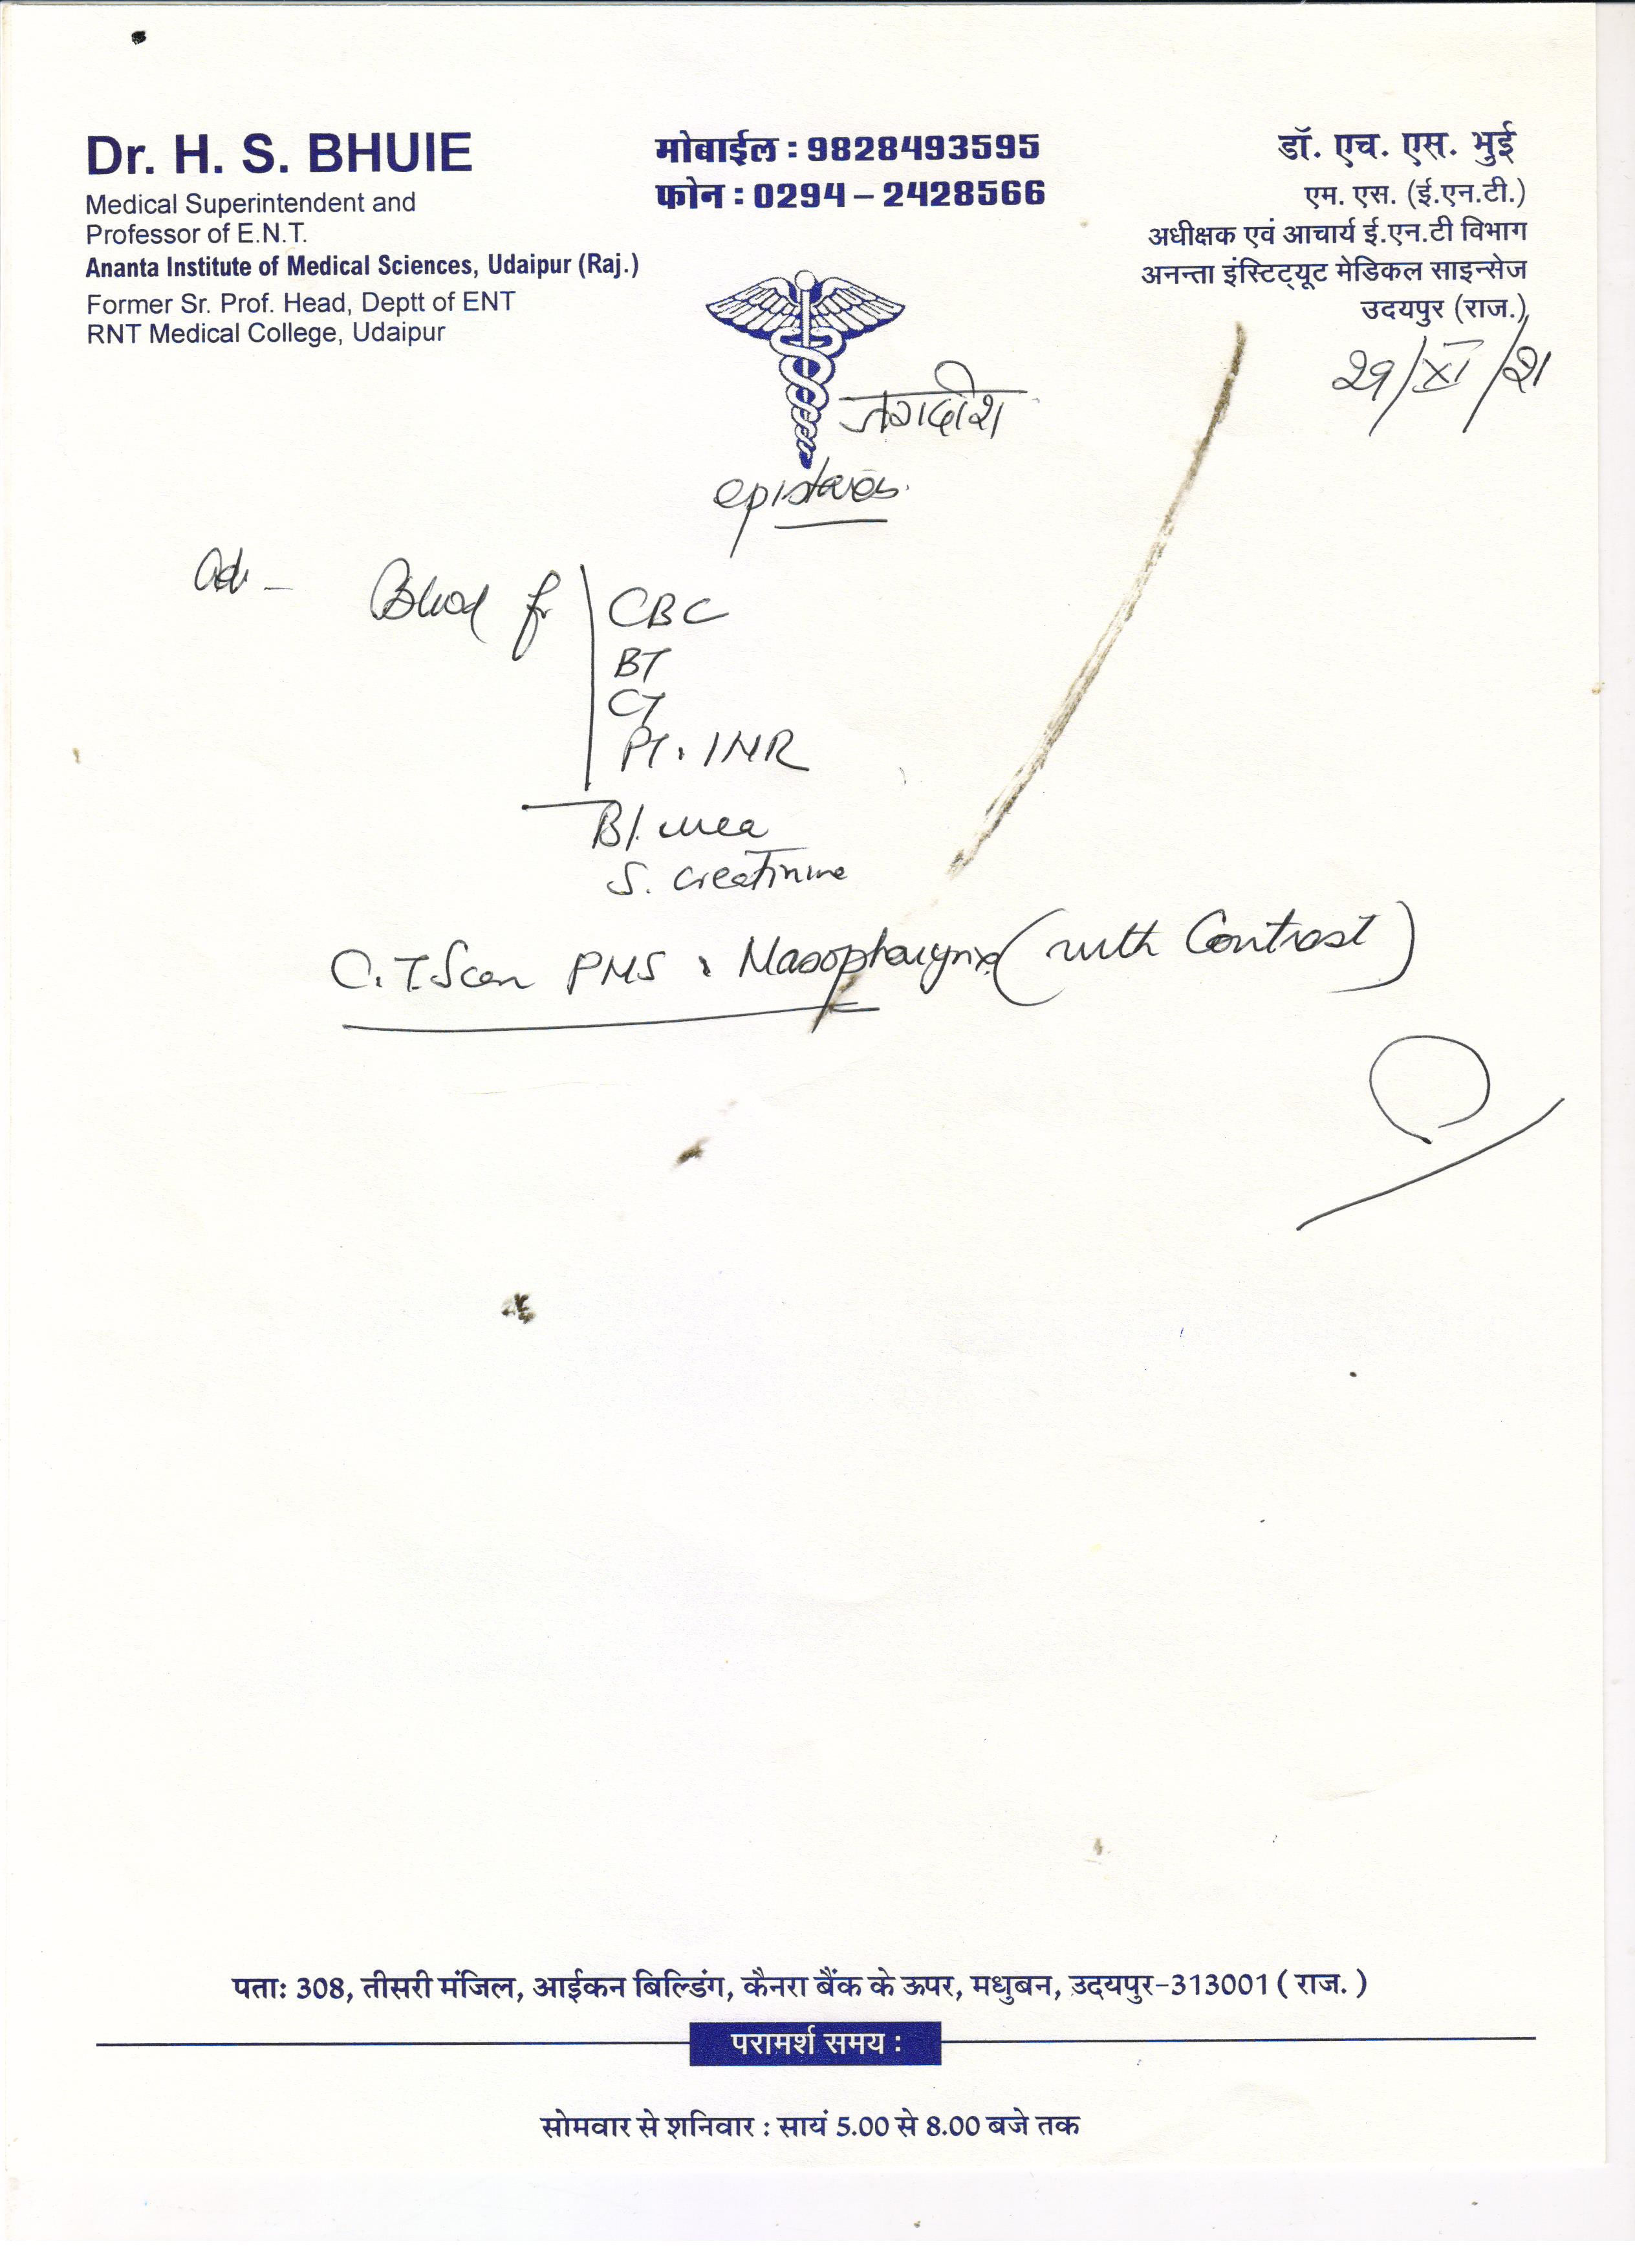 Dr. H. S. BHUIE
Medical Superintendent and
Professor of E.N.T.
Ananta Institute of Medical Sciences, Udaipur (Raj.)
Former Sr. Prof. Head, Deptt of ENT
RNT Medical College, Udaipur
मोबाईल : 9828493595
फोन : 0294 – 2428566
डॉ. एच. एस. भुई
एम. एस. (ई.एन.टी.)
अधीक्षक एवं आचार्य ई.एन.टी विभाग
अनन्ता इंस्टिट्यूट मेडिकल साइन्सेज
उदयपुर (राज.)
29/XI/21
जगदीश
epistaxis
Adv - Blood for CBC
BT
CT
PT. INR
Bl. urea
S. Creatinine
C.T. Scan PNS, Nasopharynx (with Contrast)
पताः 308, तीसरी मंजिल, आईकन बिल्डिंग, कैनरा बैंक के ऊपर, मधुबन, उदयपुर-313001 ( राज. )
परामर्श समय :
सोमवार से शनिवार : सायं 5.00 से 8.00 बजे तक